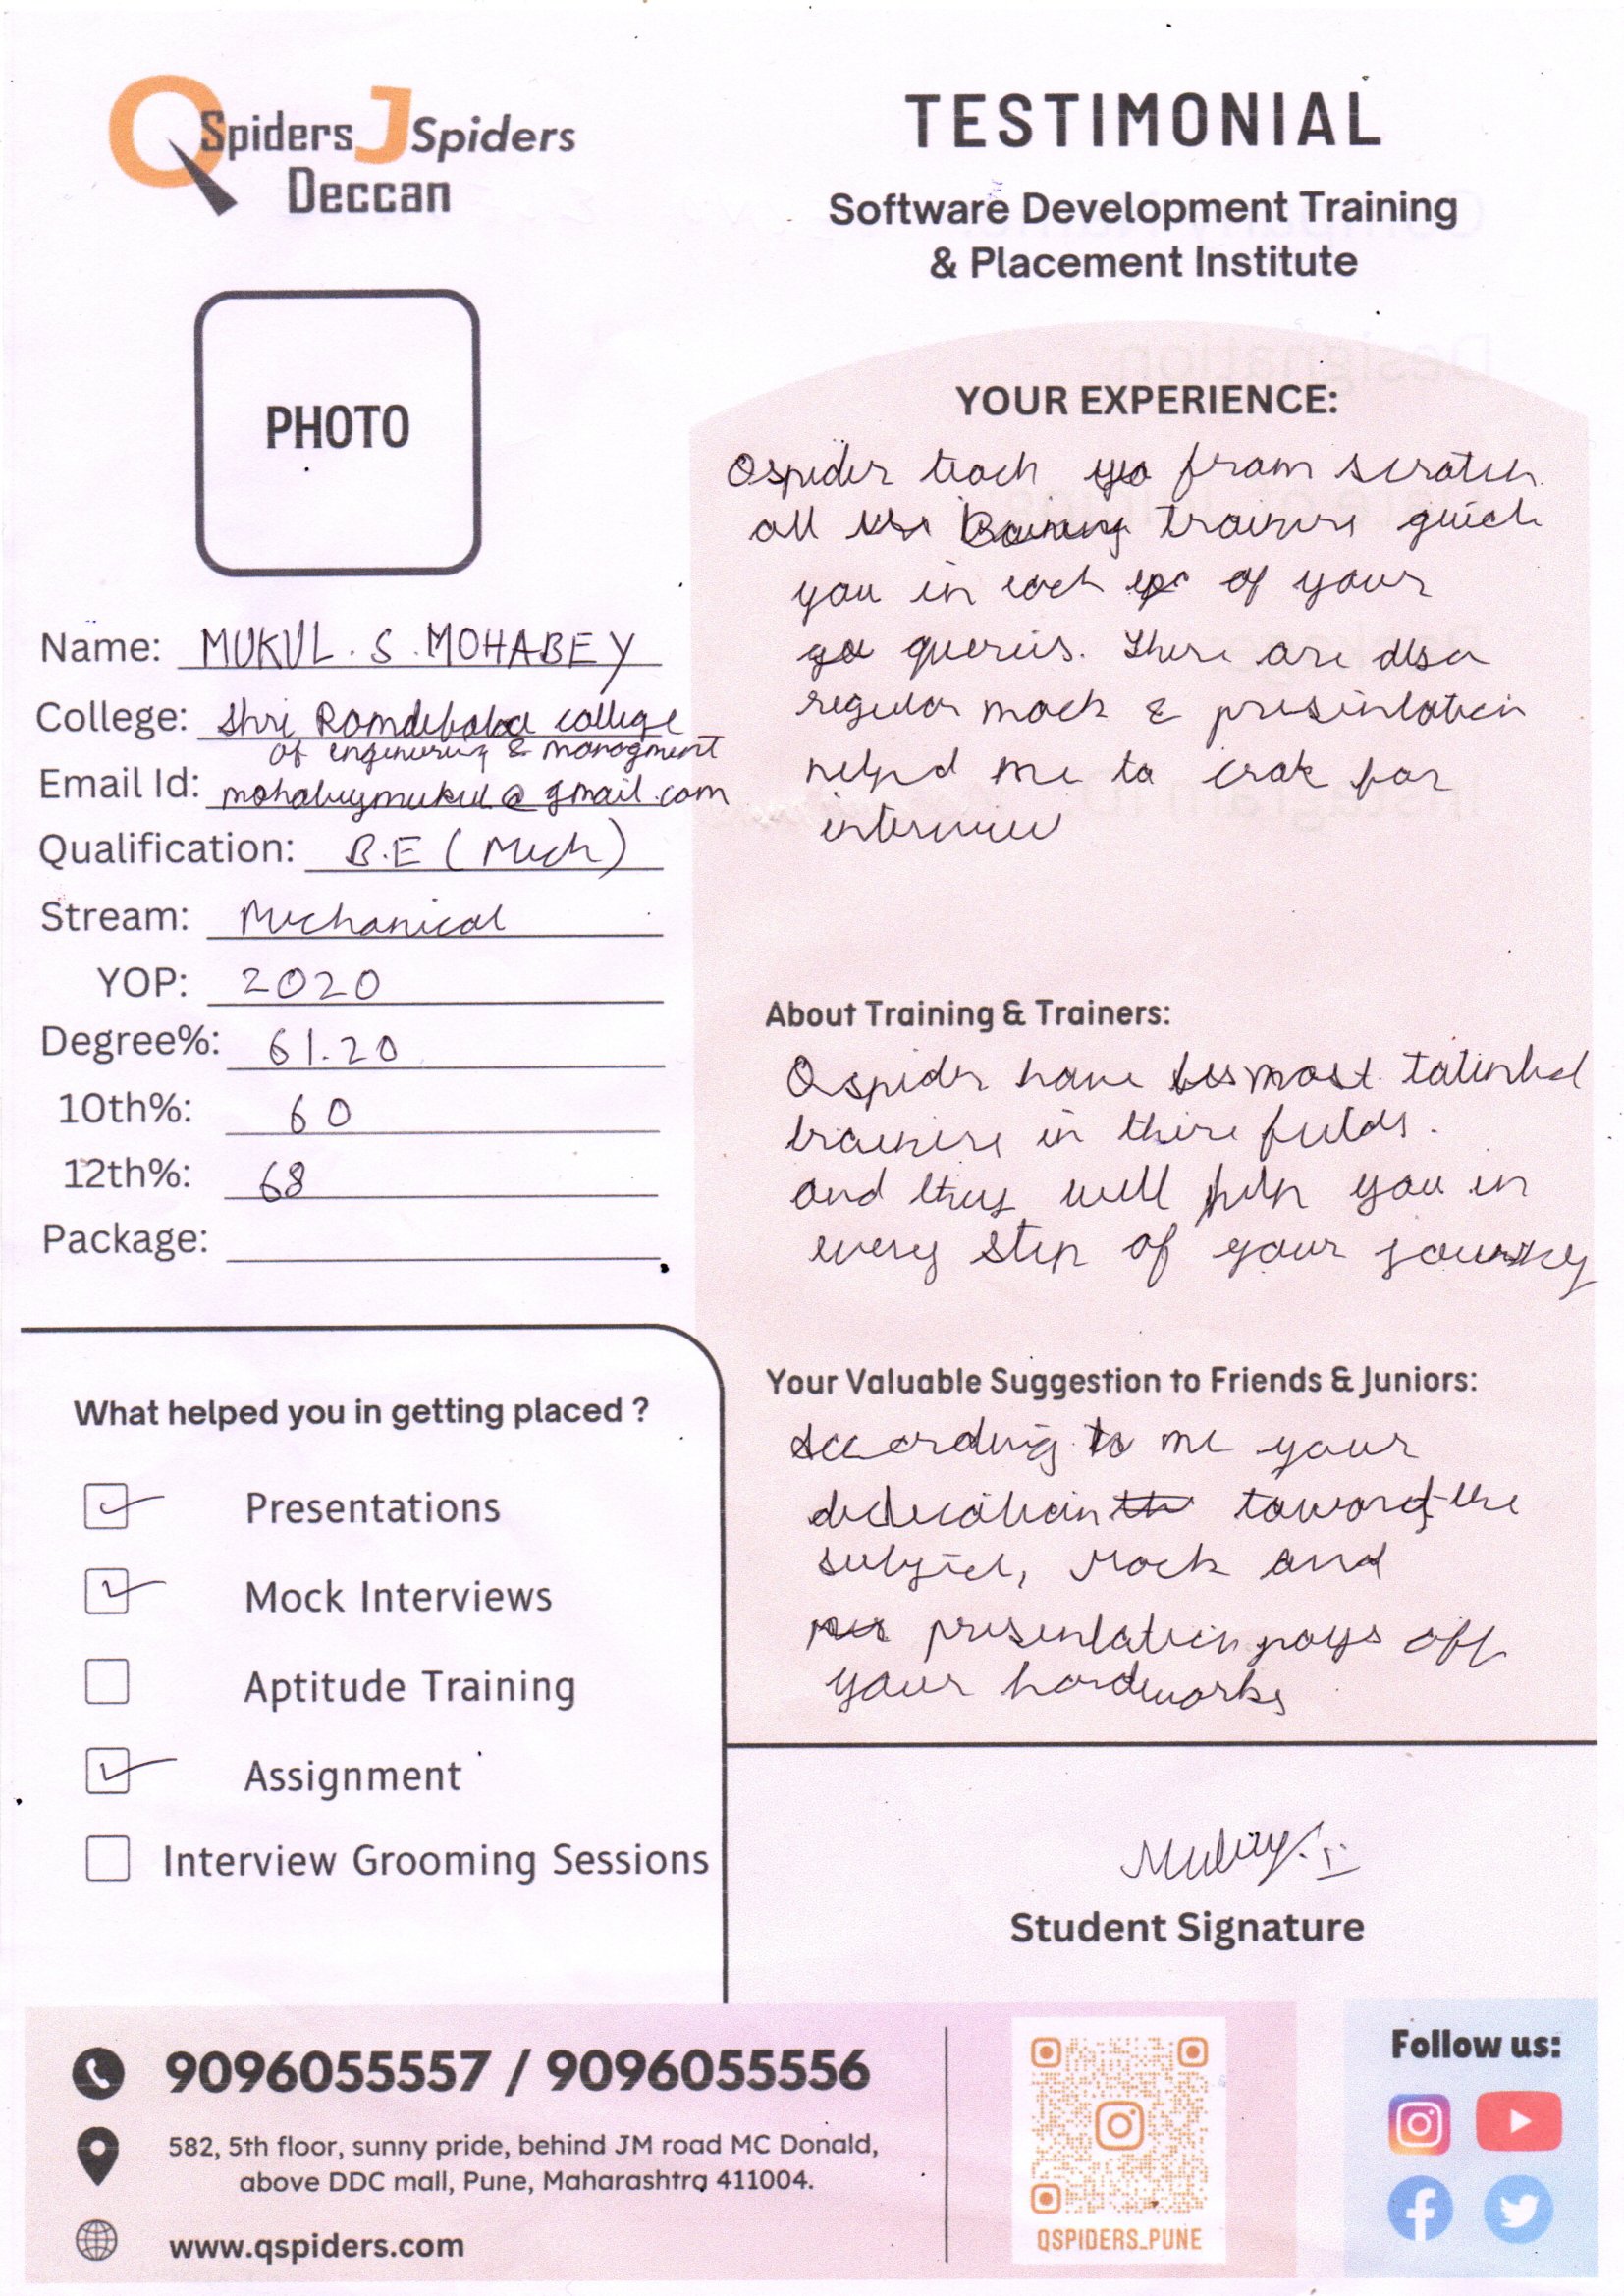 QSpiders JSpiders
Deccan
TESTIMONIAL
Software Development Training
& Placement Institute
PHOTO
Name: MUKUL . S . MOHABEY
College: Shri Ramdebaba college
of enginering & managment
Email Id: mohabeymukul@gmail.com
Qualification: B.E ( Mech )
Stream: Mechanical
YOP: 2020
Degree%: 61.20
10th%: 60
12th%: 68
Package:
What helped you in getting placed ?
Presentations
Mock Interviews
Aptitude Training
Assignment
Interview Grooming Sessions
YOUR EXPERIENCE:
Qspider teach from scratch.
all trainers
you in each of your
queries. There are also
regular mock & presentation
helped me to crak for
interview
About Training & Trainers:
Qspider have most talented
trainers in there fields.
and they will help you in
every step of your journey
Your Valuable Suggestion to Friends & Juniors:
According to me your
toward the
subject, Mock and
presentation pays off
your hardworks
Student Signature
9096055557 / 9096055556
582, 5th floor, sunny pride, behind JM road MC Donald,
above DDC mall, Pune, Maharashtra 411004.
www.qspiders.com
QSPIDERS_PUNE
Follow us: